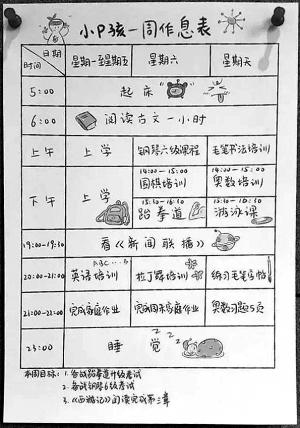 小P孩一周作息表
日期
时间
星期一至星期五 星期六 星期天
5:00 起床
6:00 阅读古文一小时
上午 上学 钢琴六级课程 毛笔书法培训
下午 上学 14:00-15:00 围棋培训 14:00-15:00 奥数培训
15:10-16:10 跆拳道 15:10-16:30 游泳课
19:00-19:30 看《新闻联播》
20:00-21:00 ABC...3 英语培训 拉丁舞培训 练习毛笔写帖
21:00-22:00 完成家庭作业 完成周末家庭作业 奥数习题5页
23:00 睡觉 zzz
本周目标: 1. 备战跆拳道升级考试
2. 备战钢琴6级考试
3. 《西游记》阅读完成第三章